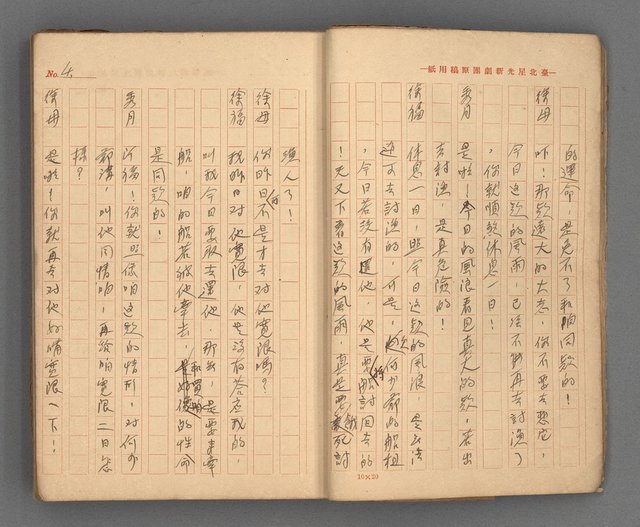 —臺北星光新劇團原稿用紙—
的運命,是免不了和咱同款的!
徐母 吓!那款遠大的大志,你不要去想它,
今日這款的風雨,已法不找再去討漁了
,你就順款休息一日!
秀月 是啦!今日的風浪看起真大的款,若出
去討漁,是真危險的!
徐福 休息一日,照今日這款的風浪,是無法
通可去討漁的,可是,欠何少爺的船租
,今日若沒有還他,他是要將船討回去的
!天又下着這款的風雨,真是要餓死討
10×20
No. 4
漁人了!
徐母 你昨日不是才去对他寬限嗎?
徐福 我昨日对他寬限,他是沒有答应我的,
叫我今日要服去還他,那出,是要來牽
船,咱的船若被他牽去,是和買咱的性命
是同款的!
秀月 阿福!你就照像咱這款的情形,对何少
爺講,叫他同情咱,再給咱寬限二日怎
樣?
徐母 是啦!你就再去对他好情寬限一下!